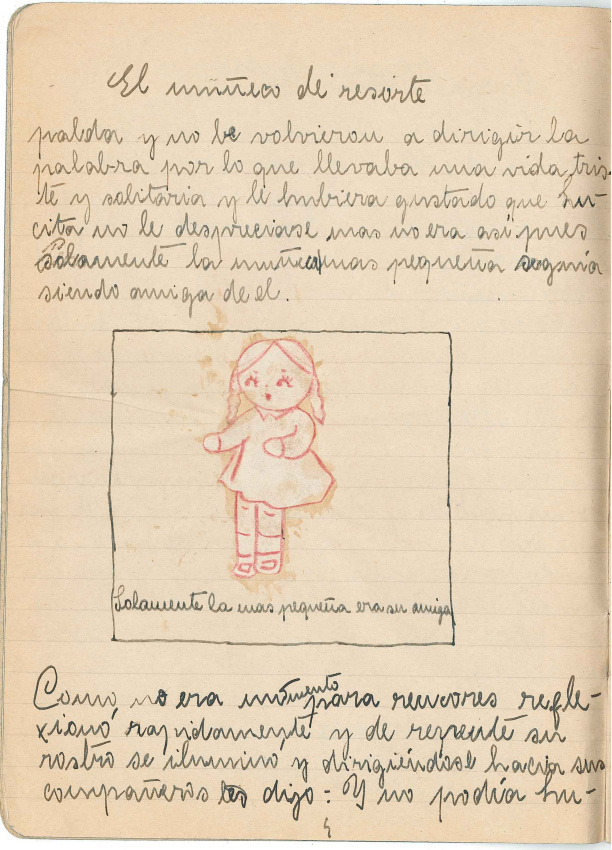 El muñeco de resorte
palda y no be volvieron a dirigir la
palabra por lo que llevaba una vida tris-
te y solitaria y le hubiera gustado que hu-
cita no le despreciase mas no era asi pues
solamente la muñeca mas pequeña seguia
siendo amiga de el.
Solamente la mas pequeña era su amiga
Como no era momento para rencores refle-
xionó rapidamente y de repente su
rostro se iluminó y dirigiéndose hacia sus
compañeros les dijo: Y no podia hu-